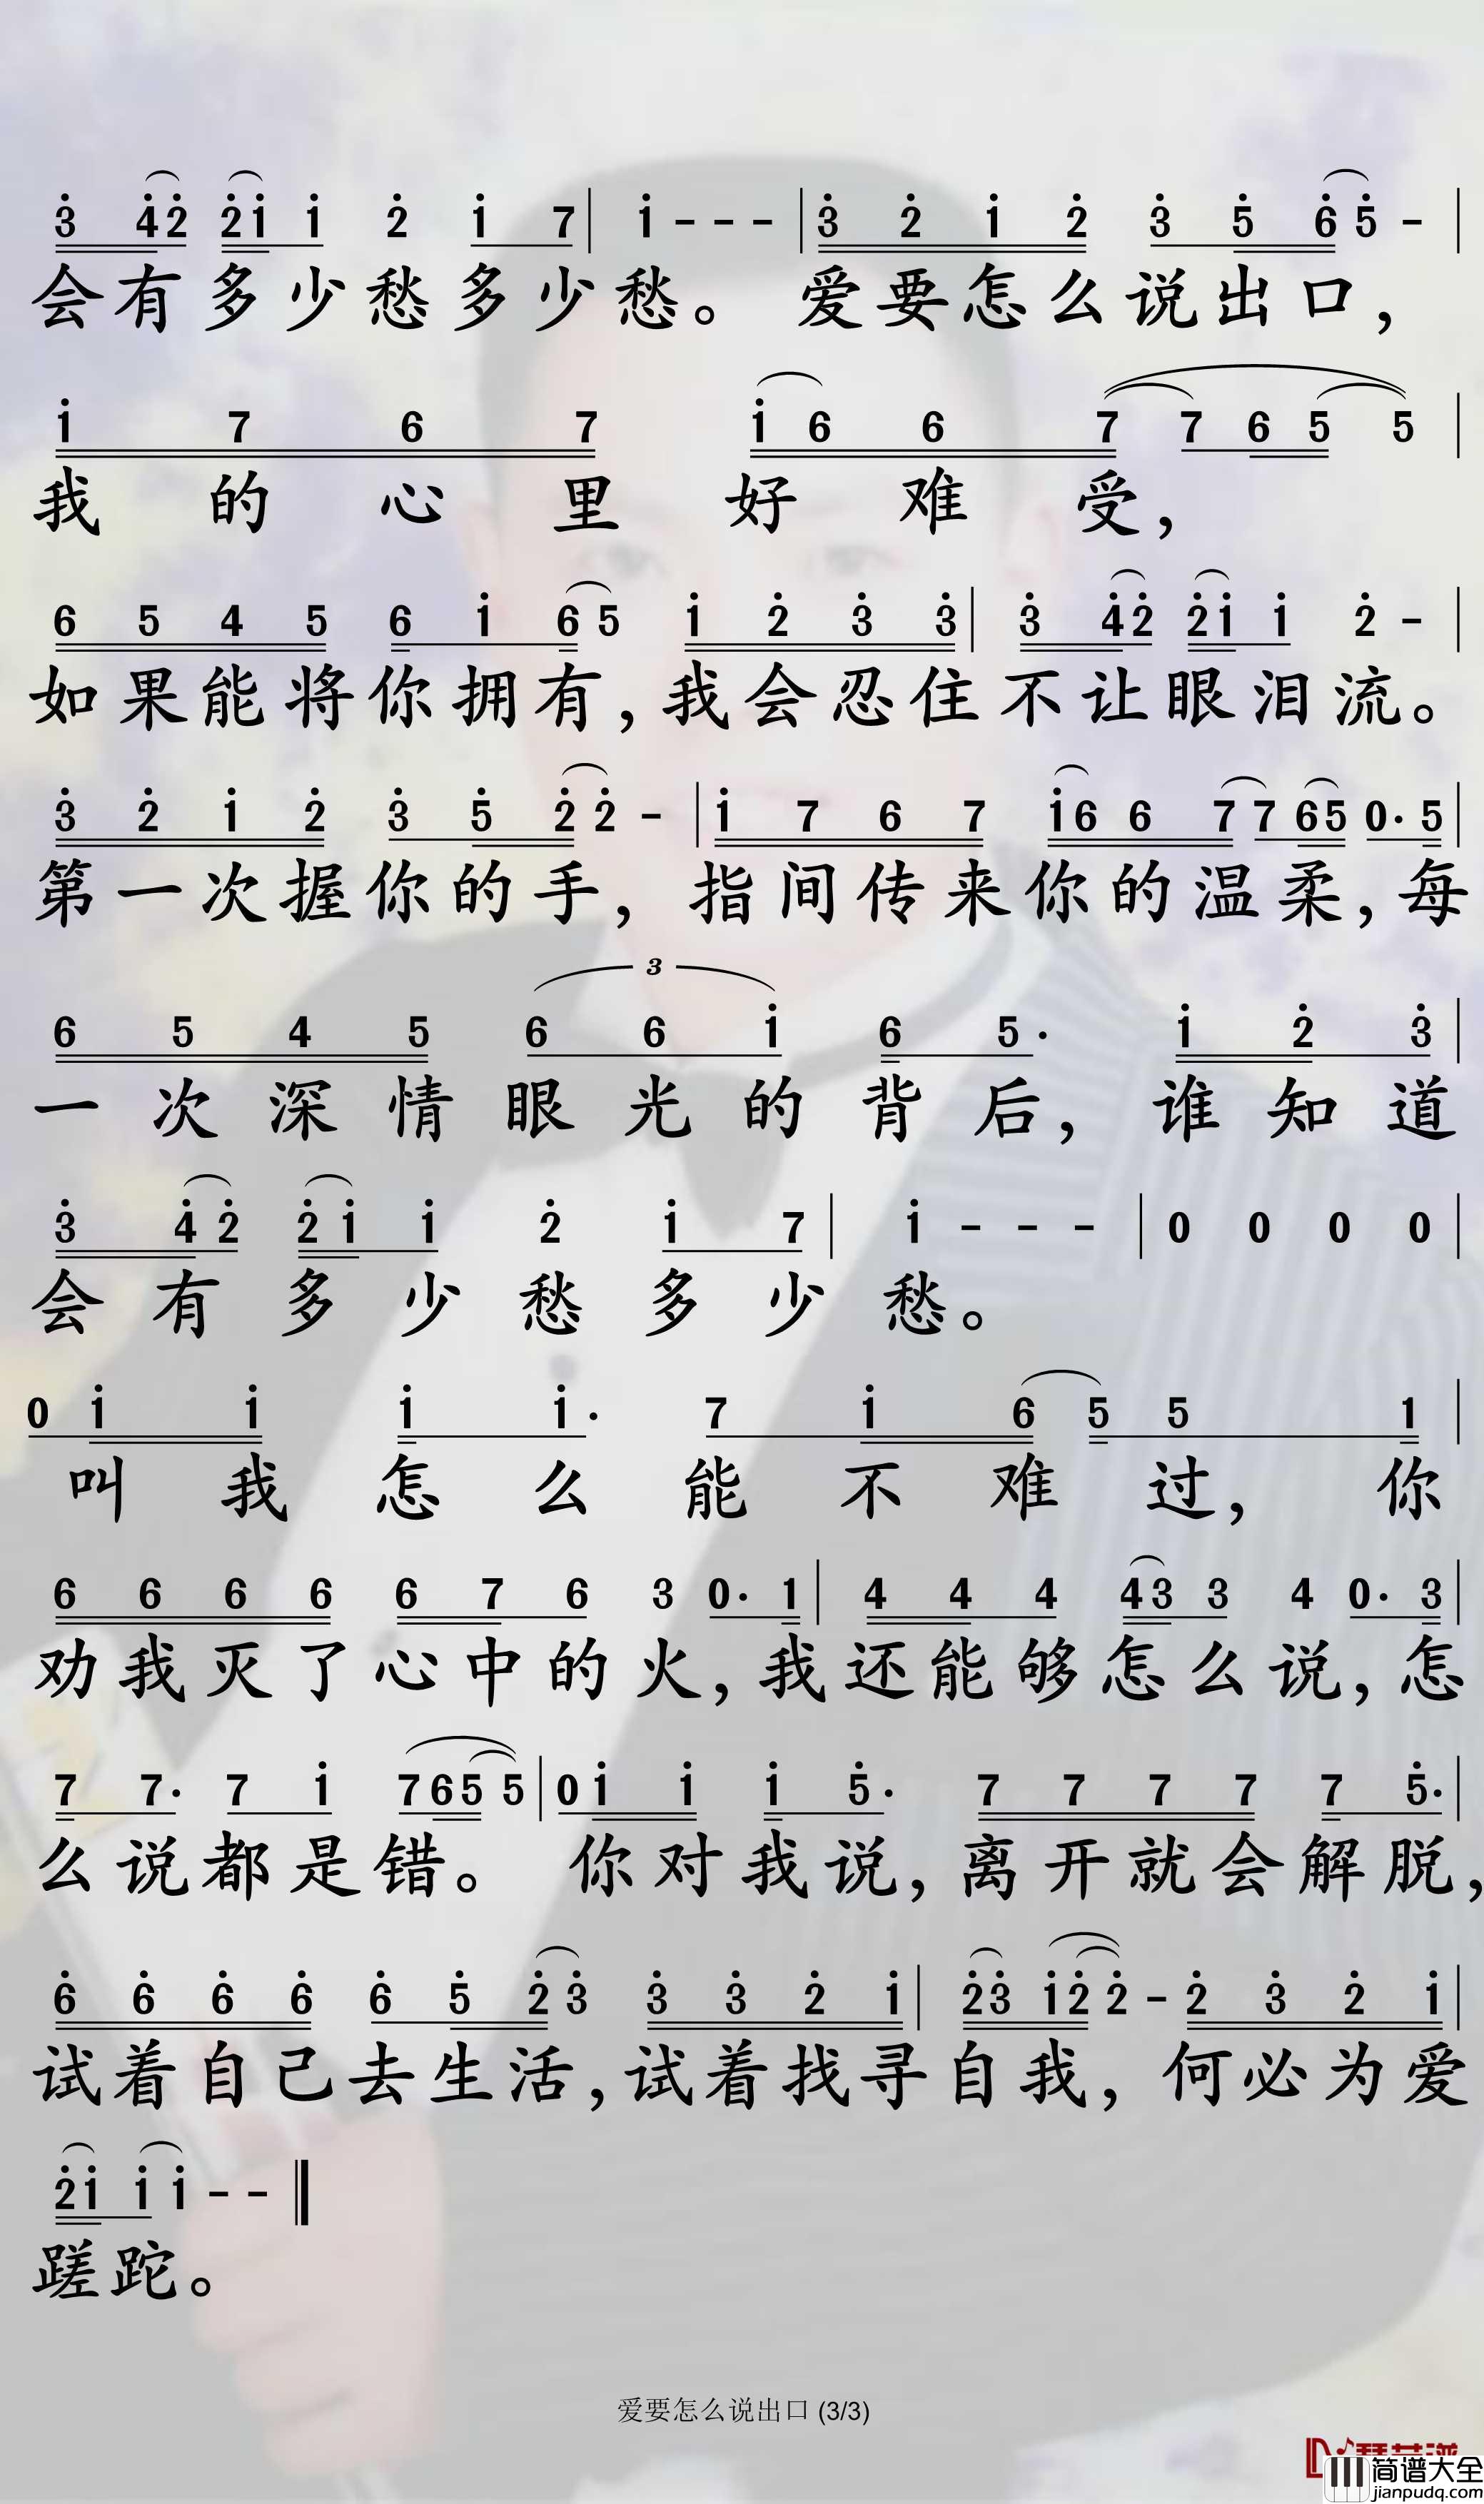 3 4 2 2 1 1 2 1 7 | 1 - - - | 3 2 1 2 3 5 6 5 - |
会有多少愁多少愁。爱要怎么说出口，
1 7 6 7 1 6 6 7 7 6 5 5 |
我的心里好难受，
6 5 4 5 6 1 6 5 1 2 3 3 | 3 4 2 2 1 1 2 - |
如果能将你拥有，我会忍住不让眼泪流。
3 2 1 2 3 5 2 2 - | 1 7 6 7 1 6 6 7 7 6 5 0· 5 |
第一次握你的手，指间传来你的温柔，每
3
6 5 4 5 6 6 1 6 5· 1 2 3 |
一次深情眼光的背后，谁知道
3 4 2 2 1 1 2 1 7 | 1 - - - | 0 0 0 0 |
会有多少愁多少愁。
0 1 1 1 1· 7 1 6 5 5 1 |
叫我怎么能不难过，你
6 6 6 6 6 7 6 3 0· 1 | 4 4 4 4 3 3 4 0· 3 |
劝我灭了心中的火，我还能够怎么说，怎
7 7· 7 1 7 6 5 5 | 0 1 1 1 5· 7 7 7 7 7 5· |
么说都是错。你对我说，离开就会解脱，
6 6 6 6 6 5 2 3 3 3 2 1 | 2 3 1 2 2 - 2 3 2 1 |
试着自己去生活，试着找寻自我，何必为爱
2 1 1 1 - - ‖
蹉跎。
爱要怎么说出口 (3/3)
简谱大全
jianpudq.com